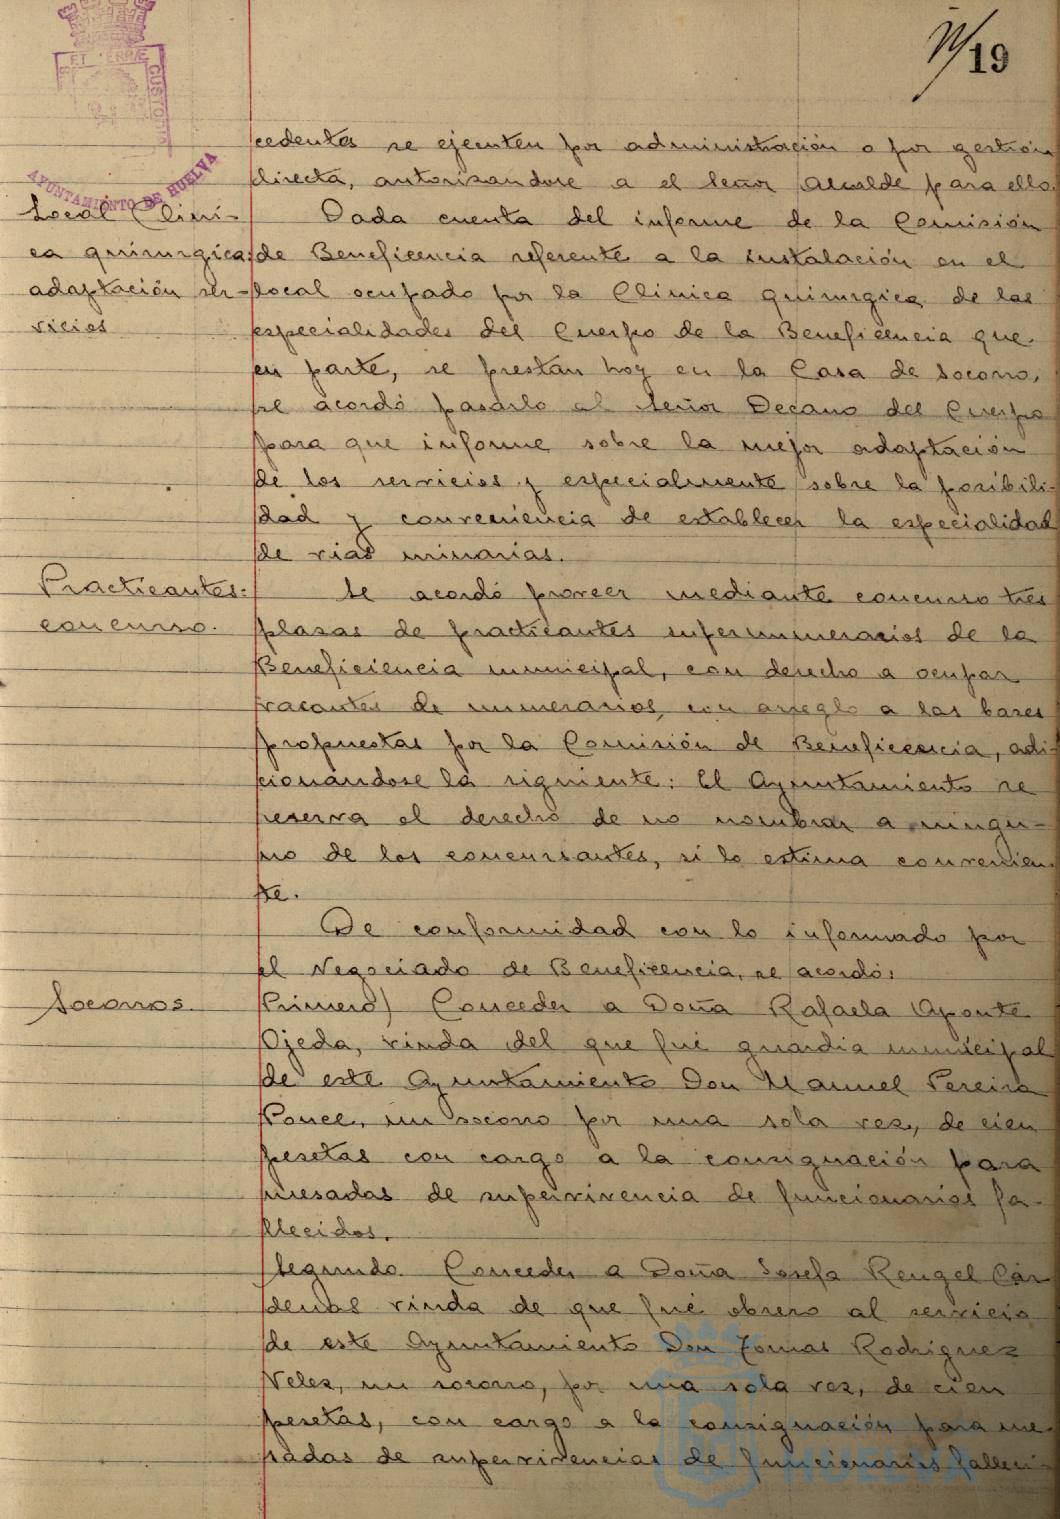 19
ET TERRÆ CUSTODIA
AYUNTAMIENTO DE HUELVA
cedentes se ejecuten por administración o por gestión
directa, autorizandose a el Señor Alcalde para ello.
Local Clini-
ca quirurgica:
adaptación ser-
vicios
Dada cuenta del informe de la Comisión
de Beneficencia referente a la instalación en el
local ocupado por la Clinica quirurgica de las
especialidades del Cuerpo de la Beneficencia que
en parte, se prestan hoy en la Casa de Socorro,
se acordó pasarlo al Señor Decano del Cuerpo
para que informe sobre la mejor adaptación
de los servicios y especialmente sobre la posibili-
dad y conveniencia de establecer la especialidad
de vias urinarias.
Practicantes:
concurso.
Se acordó proveer mediante concurso tres
plazas de practicantes supernumerarios de la
Beneficiencia municipal, con derecho a ocupar
vacantes de numerarios, con arreglo a las bases
propuestas por la Comisión de Beneficencia, adi-
cionandose la siguiente: El Ayuntamiento se
reserva el derecho de no nombrar a ningu-
no de los concursantes, si lo estima convenien-
te.
De conformidad con lo informado por
el Negociado de Beneficencia, se acordó:
Socorros.
Primero) Conceder a Doña Rafaela Aponte
Ojeda, viuda del que fué guardia municipal
de este Ayuntamiento Don Manuel Pereira
Ponce, un socorro por una sola vez, de cien
pesetas con cargo a la consignación para
mesadas de supervivencia de funcionarios fa-
llecidos.
Segundo. Conceder a Doña Josefa Rengel Cár
denas viuda de que fué obrero al servicio
de este Ayuntamiento Don Tomas Rodriguez
Velez, un socorro, por una sola vez, de cien
pesetas, con cargo a la consignación para me-
sadas de supervivencias de funcionarios falleci-
HUELVA